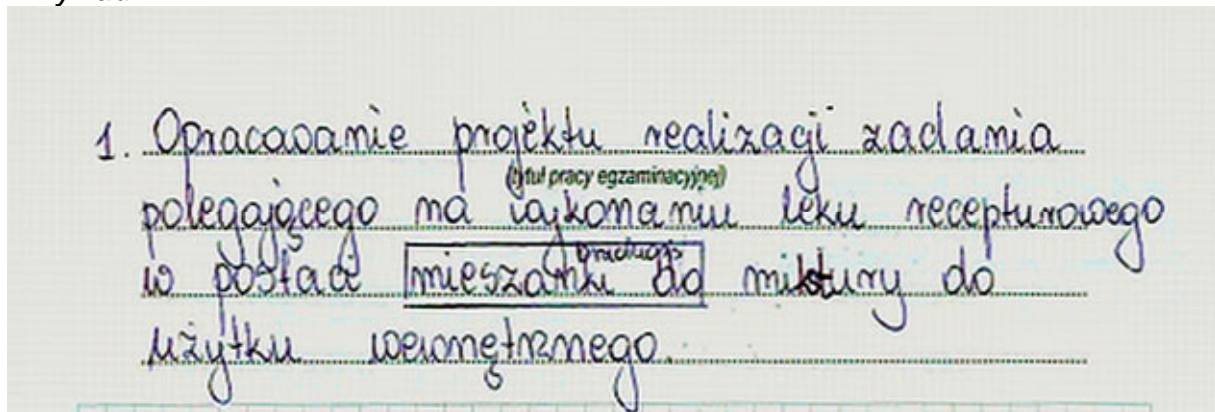 1. Opracowanie projektu realizacji zadania
(tytuł pracy egzaminacyjnej)
polegającego na wykonaniu leku recepturowego
w postaci mieszanki do mikstury do
użytku wewnętrznego.